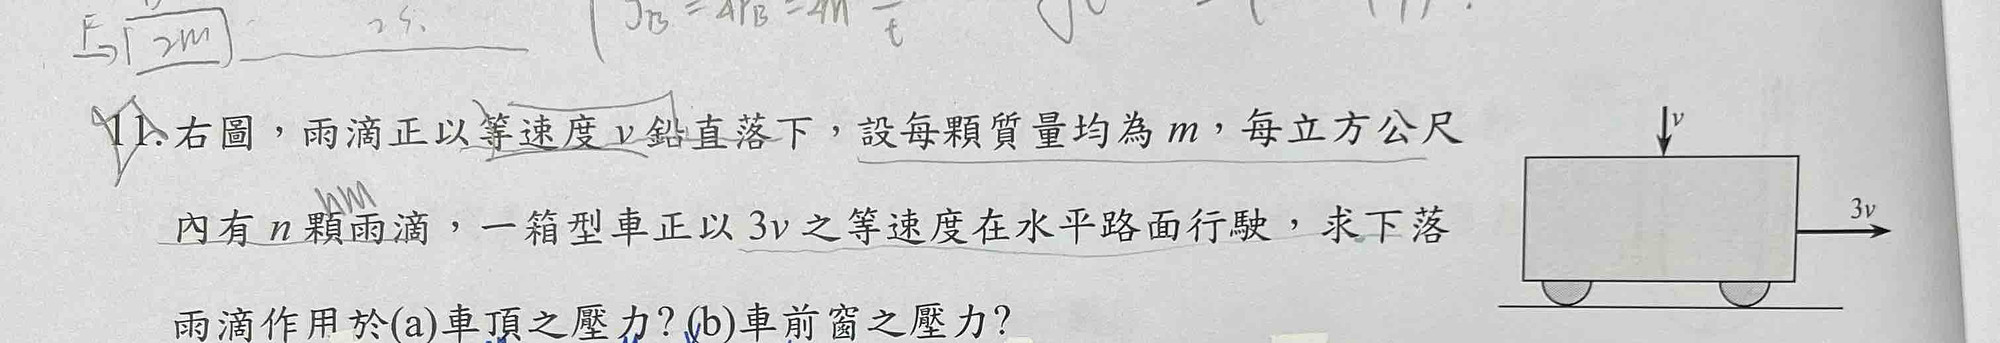 F 2m 2s.
11.右圖，雨滴正以等速度 v 鉛直落下，設每顆質量均為 m，每立方公尺
nm
內有 n 顆雨滴，一箱型車正以 3v 之等速度在水平路面行駛，求下落
雨滴作用於(a)車頂之壓力？(b)車前窗之壓力？
v
3v